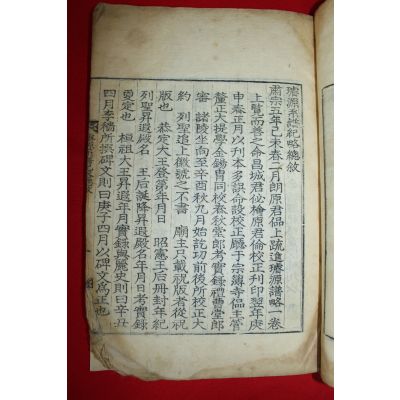 璿源系譜紀略總敘
肅宗五年己未春二月朗原君偘上疏進璿源譜略一卷
上覽而善之命昌城君佖檜原君倫校正刊印翌年庚
申春正月以刊本多誤命設校正廳于宗簿寺偘主管
釐正大提學金錫胄同校春秋堂郎考實錄禮曹堂郎
審 諸陵坐向至辛酉秋九月始訖功前後所校正大
約 列聖追上徽號之不書 廟主只載祝版者從祝
版也 恭定大王登第年月日 昭憲王后冊封年紀
列聖昇遐殿名 王后誕降昇遐殿名年月日考實錄
爰定也 桓祖大王昇遐年月實錄與麗史則曰辛丑
四月李穡所撰碑文則曰庚子四月以碑文爲正也